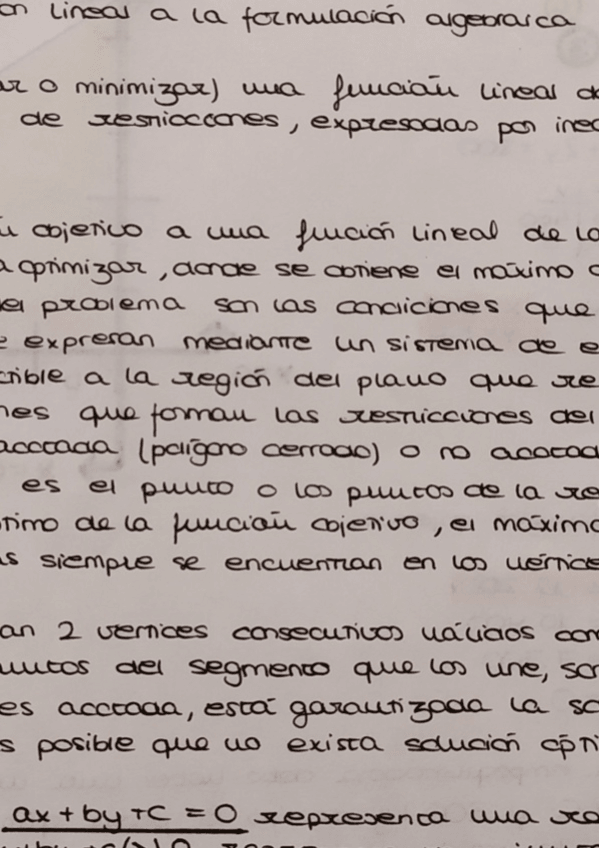 on lineal a la formulación algebraica
ar o minimizar) una función lineal d
de restricciones, expresadas por inec
objetivo a una función lineal de la
a optimizar, donde se obtiene el máximo o
el problema son las condiciones que
e expresan mediante un sistema de e
ctible a la región del plano que re
nes que forman las restricciones del
acotada (polígono cerrado) o no acotad
es el punto o los puntos de la re
timo de la función objetivo, el máximo
s siempre se encuentran en los vértice
an 2 vértices consecutivos válidos com
untos del segmento que los une, so
es acotada, está garantizada la so
s posible que no exista solución ópti
ax + by + c = 0 representa una re